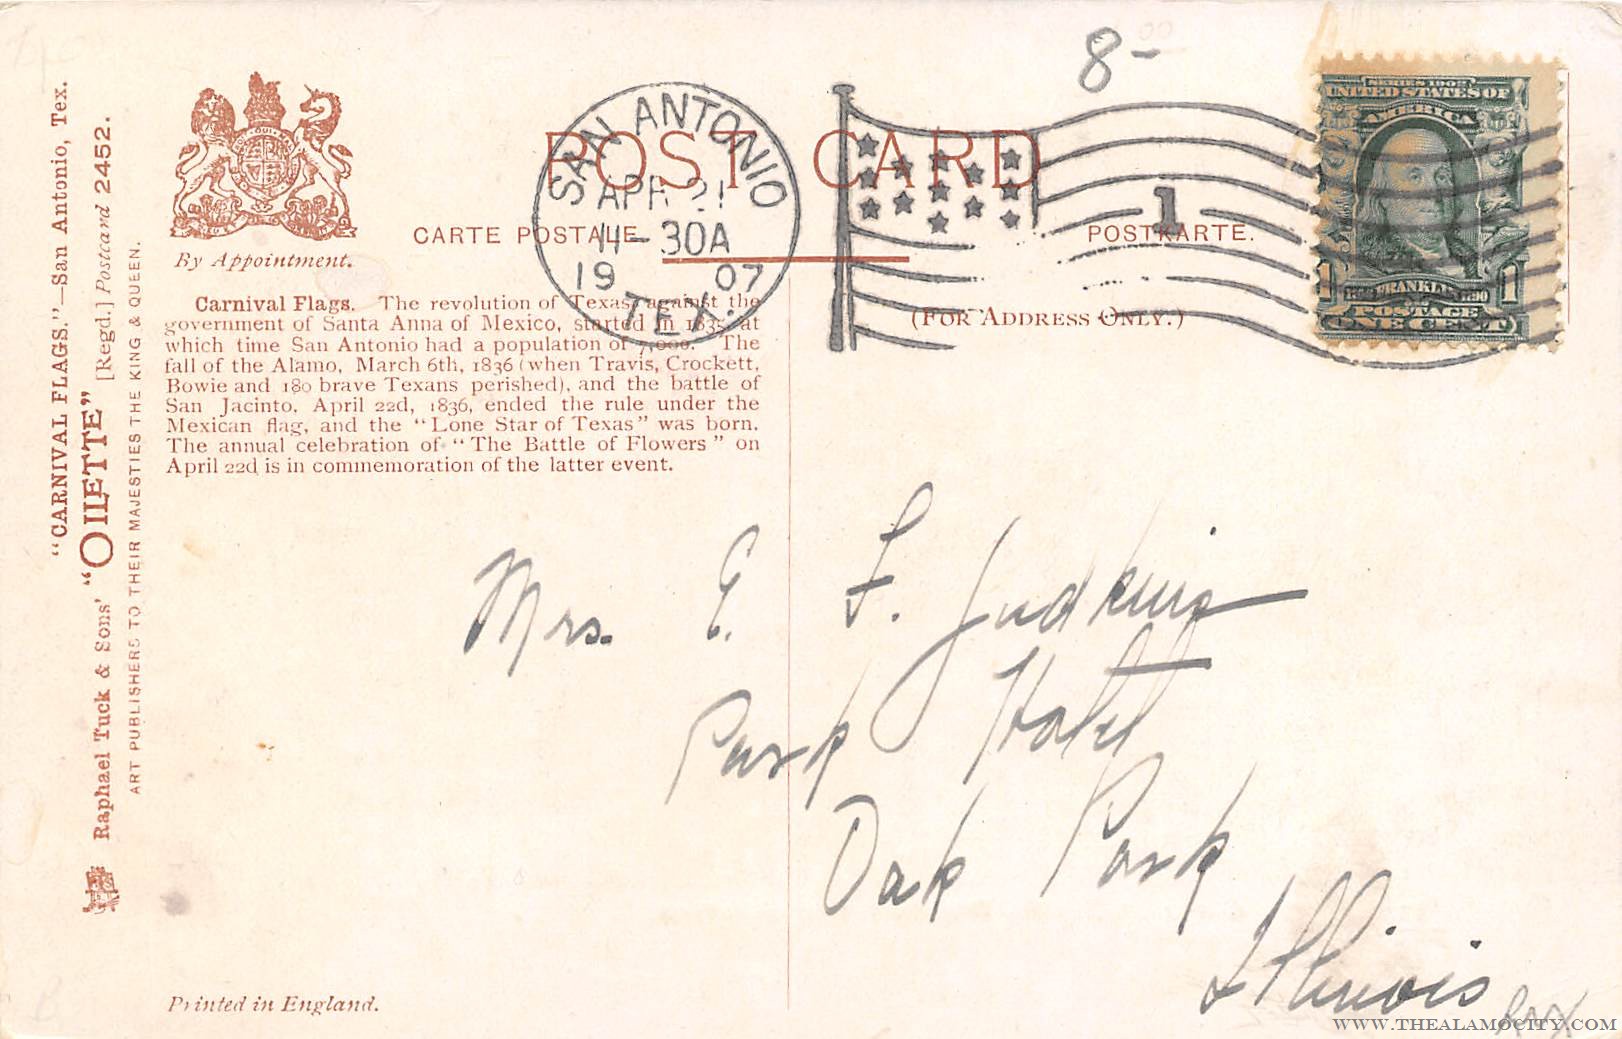 8-
POST CARD
CARTE POSTALE
POSTKARTE.
(FOR ADDRESS ONLY.)
SAN ANTONIO
APR 21
11-30A
19 07
TEX.
1
SERIES 1902
UNITED STATES OF
AMERICA
FRANKLIN
1 1
POSTAGE
ONE CENT
By Appointment.
Carnival Flags. The revolution of Texas against the
government of Santa Anna of Mexico, started in 1835, at
which time San Antonio had a population of 7,000. The
fall of the Alamo, March 6th, 1836 (when Travis, Crockett,
Bowie and 180 brave Texans perished), and the battle of
San Jacinto, April 22d, 1836, ended the rule under the
Mexican flag, and the "Lone Star of Texas" was born.
The annual celebration of "The Battle of Flowers" on
April 22d is in commemoration of the latter event.
"CARNIVAL FLAGS."—San Antonio, Tex.
Raphael Tuck & Sons' "OILETTE" [Regd.] Postcard 2452.
ART PUBLISHERS TO THEIR MAJESTIES THE KING & QUEEN.
Mrs. E. F. Judkins
Park Hotel
Oak Park
Illinois
Printed in England.
WWW.THEALAMOCITY.COM